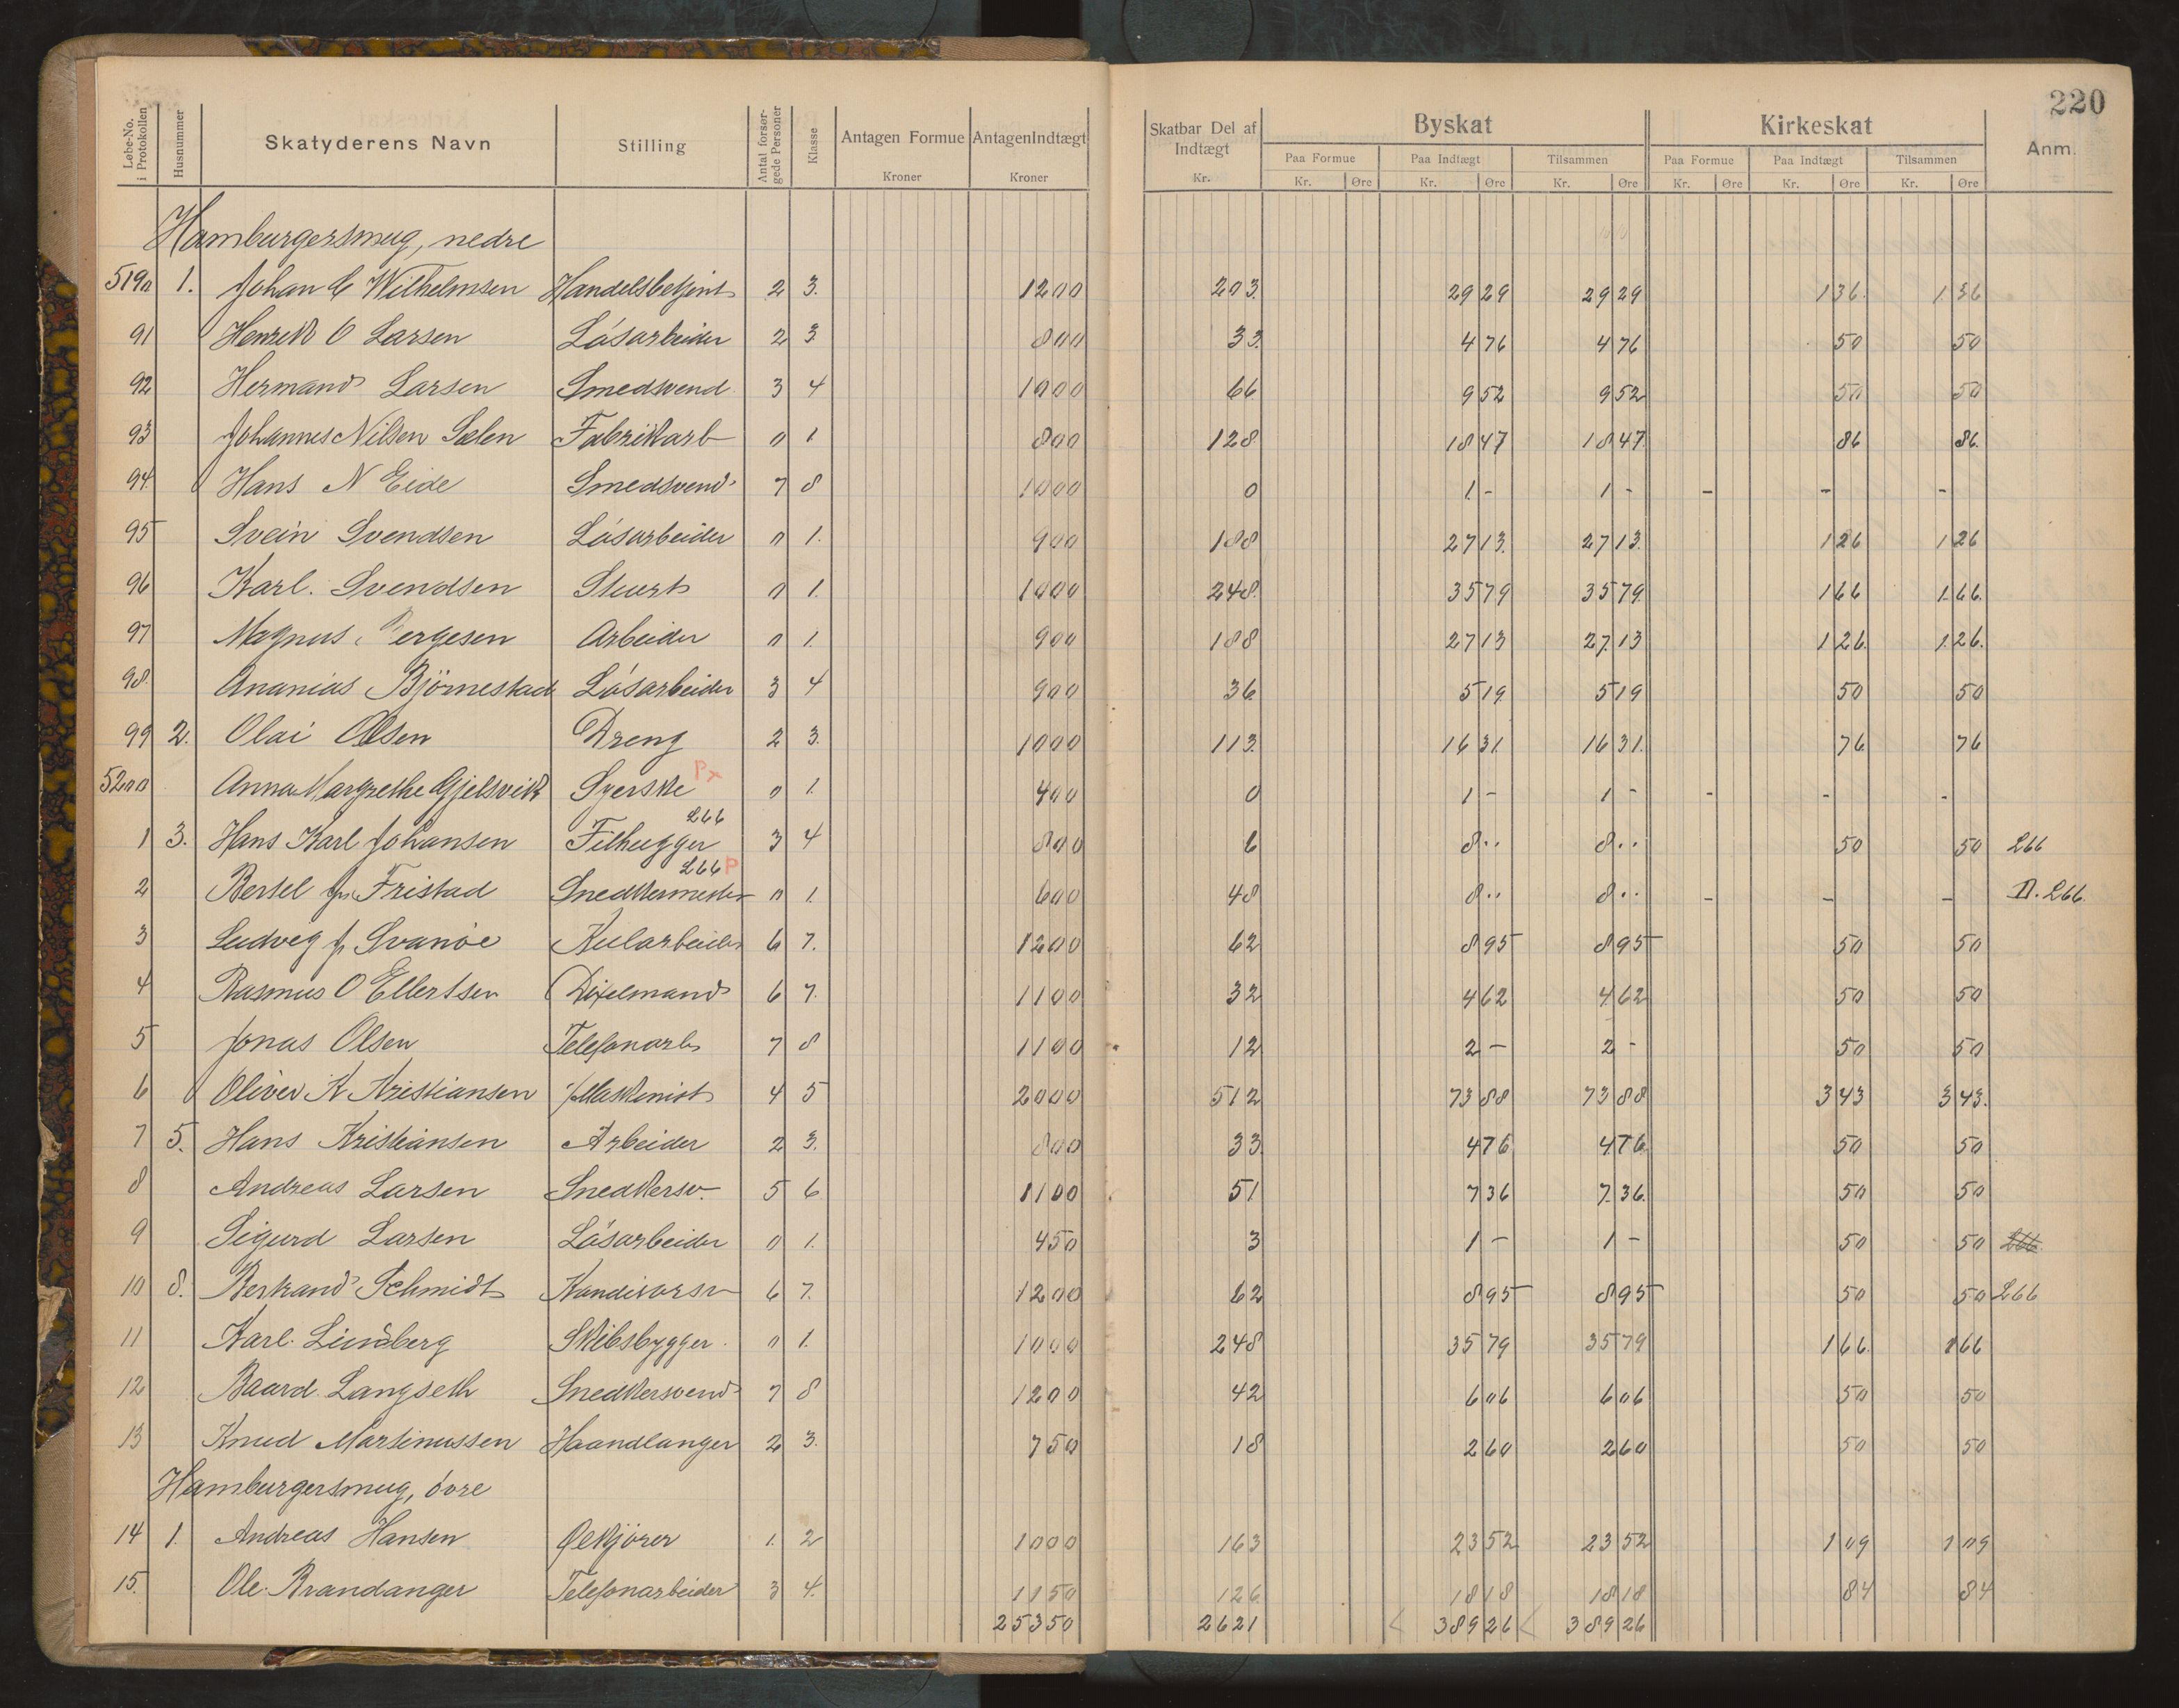 220
Løbe-No. i Protokollen Husnummer Skatyderens Navn Stilling Antal forsørgede Personer Klasse Antagen Formue Kroner Antagen Indtægt Kroner Skatbar Del af Indtægt Kr. Byskat Paa Formue Kr. Øre Paa Indtægt Kr. Øre Tilsammen Kr. Øre Kirkeskat Paa Formue Kr. Øre Paa Indtægt Kr. Øre Tilsammen Kr. Øre Anm.
Hamburgersmug, nedre
5190 1. Johan C Wilhelmsen Handelsbetjent 2 3. 1200 203 29 29 29 29 1 36 1 36
91 Henrik O Larsen Løsarbeider 2 3 800 33 4 76 4 76 50 50
92 Hermand Larsen Smedsvend 3 4 1000 66 9 52 9 52 50 50
93 Johannes Nilsen Sælen Fabrikarb 0 1 800 128 18 47 18 47 86 86
94 Hans N Eide Smedsvend 7 8 1000 0 1 - 1 - - - -
95 Svein Svendsen Løsarbeider 0 1. 900 188 27 13 27 13 1 26 1 26
96 Karl Svendsen Stuert 0 1. 1000 248 35 79 35 79 1 66 1 66
97 Magnus Børgesen Arbeider 0 1. 900 188 27 13 27 13 1 26 1 26
98 Ananias Björnestad Løsarbeider 3 4 900 36 5 19 5 19 50 50
99 2. Olai Olsen Dreng 2 3. 1000 113 16 31 16 31 76 76
5200 Anna Margrethe Gjelsvik Syerske 0 1. 400 0 1 - 1 - - - -
1 3. Hans Karl Johansen Filhugger 266 3 4 800 6 8 .. 8 .. 50 50 266
2 Bertel Js. Fristad Snedkermester 266 P 0 1. 600 48 8 .. 8 .. - - - D. 266
3 Ludvig J. Svanöe Kularbeider 6 7. 1200 62 8 95 8 95 50 50
4 Rasmus O Ellertsen Dixelmand 6 7. 1100 32 4 62 4 62 50 50
5 Jonas Olsen Telefonarb 7 8 1100 12 2 - 2 - 50 50
6 Oliver K Kristiansen Maskinist 4 5 2000 512 73 88 73 88 3 43 3 43
7 5. Hans Kristiansen Arbeider 2 3. 800 33 4 76 4 76 50 50
8 Andreas Larsen Snedkersv. 5 6 1100 51 7 36 7 36 50 50
9 Sigurd Larsen Løsarbeider 0 1. 450 3 1 - 1 - 50 50 266
10 8. Bertrand Schmidt Kanditorsv 6 7. 1200 62 8 95 8 95 50 50 266
11 Karl Lindberg Skibsbygger 0 1. 1000 248 35 79 35 79 1 66 1 66
12 Baard Langseth Snedkersvend 7 8 1200 42 6 06 6 06 50 50
13 Knud Martinussen Haandlanger 2 3. 750 18 2 60 2 60 50 50
Hamburgersmug, övre
14 1. Andreas Hansen Ølkjörer 1. 2 1000 163 23 52 23 52 1 09 1 09
15. Ole Brandanger Telefonarbeider 3 4. 1150 126 18 18 18 18 84 84
25350 2621 389 26 389 26